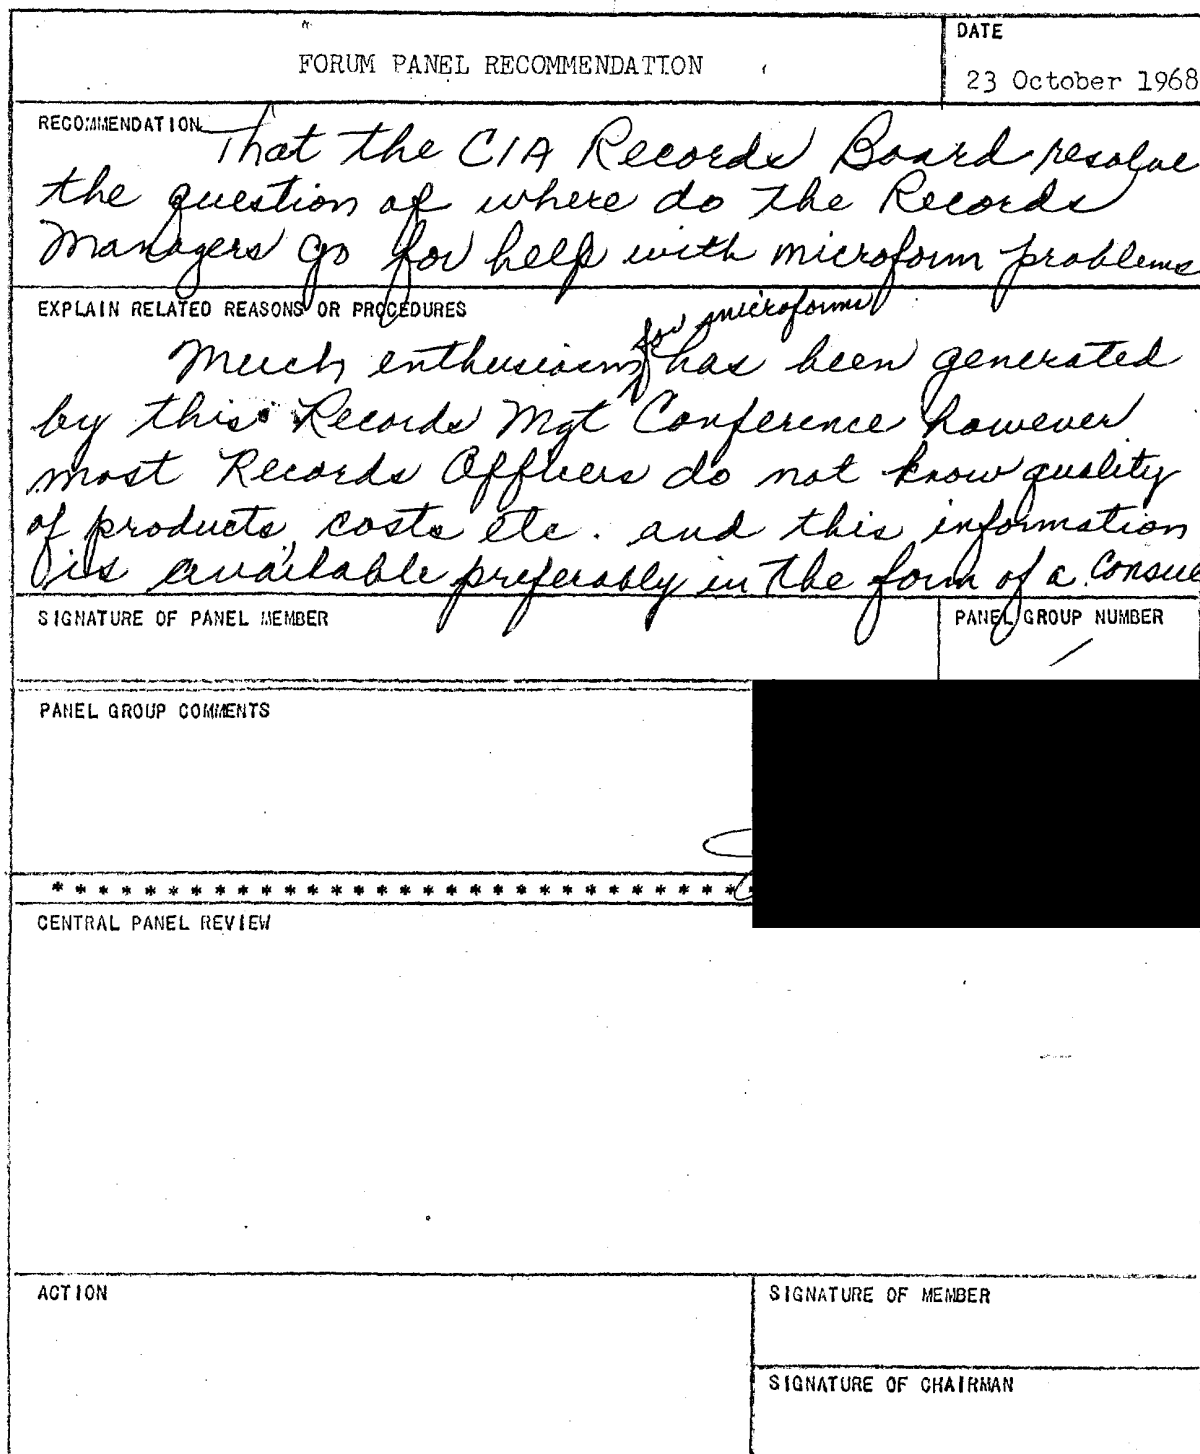 FORUM PANEL RECOMMENDATION
DATE
23 October 1968
RECOMMENDATION
That the CIA Records Board resolve
the question of where do the Records
Managers go for help with microform problems
EXPLAIN RELATED REASONS OR PROCEDURES
for microforms
Much enthusiasm has been generated
by this Records Mgt Conference however
most Records Officers do not know quality
of products, costs etc. and this information
is available preferably in the form of a
SIGNATURE OF PANEL MEMBER
PANEL GROUP NUMBER
PANEL GROUP COMMENTS
* * * * * * * * * * * * * * * * * * * * * * * * * * * * * *
CENTRAL PANEL REVIEW
ACTION
SIGNATURE OF MEMBER
SIGNATURE OF CHAIRMAN